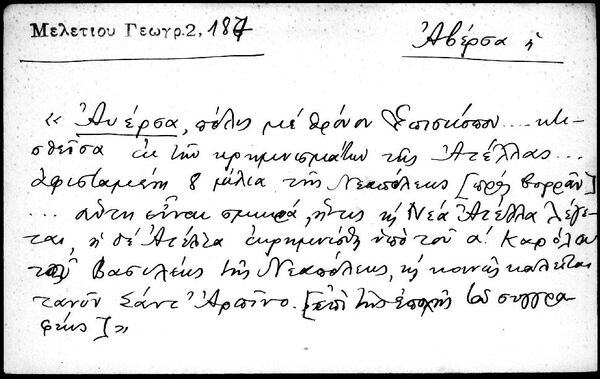 Μελετίου Γεωγρ. 2, 187
Ἀβέρσα ἡ
« Ἀυέρσα, πόλις μὲ θρόνον Ἐπισκόπου .... κτι-
σθεῖσα ἐκ τῶν κρημνισμάτων τῆς Ἀτέλλας ...
ἀφισταμένη 8 μίλια τῆς Νεαπόλεως [πρὸς βορρᾶν]
... αὕτη εἶναι σμικρά, ἥτις καὶ Νέα Ἀτέλλα λέγε-
ται, ἡ δὲ Ἀτέλλα ἐκρημνίσθη ὑπὸ τοῦ α΄. Καρόλου
τοῦ Βασιλέως τῆς Νεαπόλεως, καὶ κοινῶς καλεῖται
τανῦν Σάντ' Ἀρπίνο. [ἐπὶ τῆς ἐποχῆς τοῦ συγγρα
φέως] »